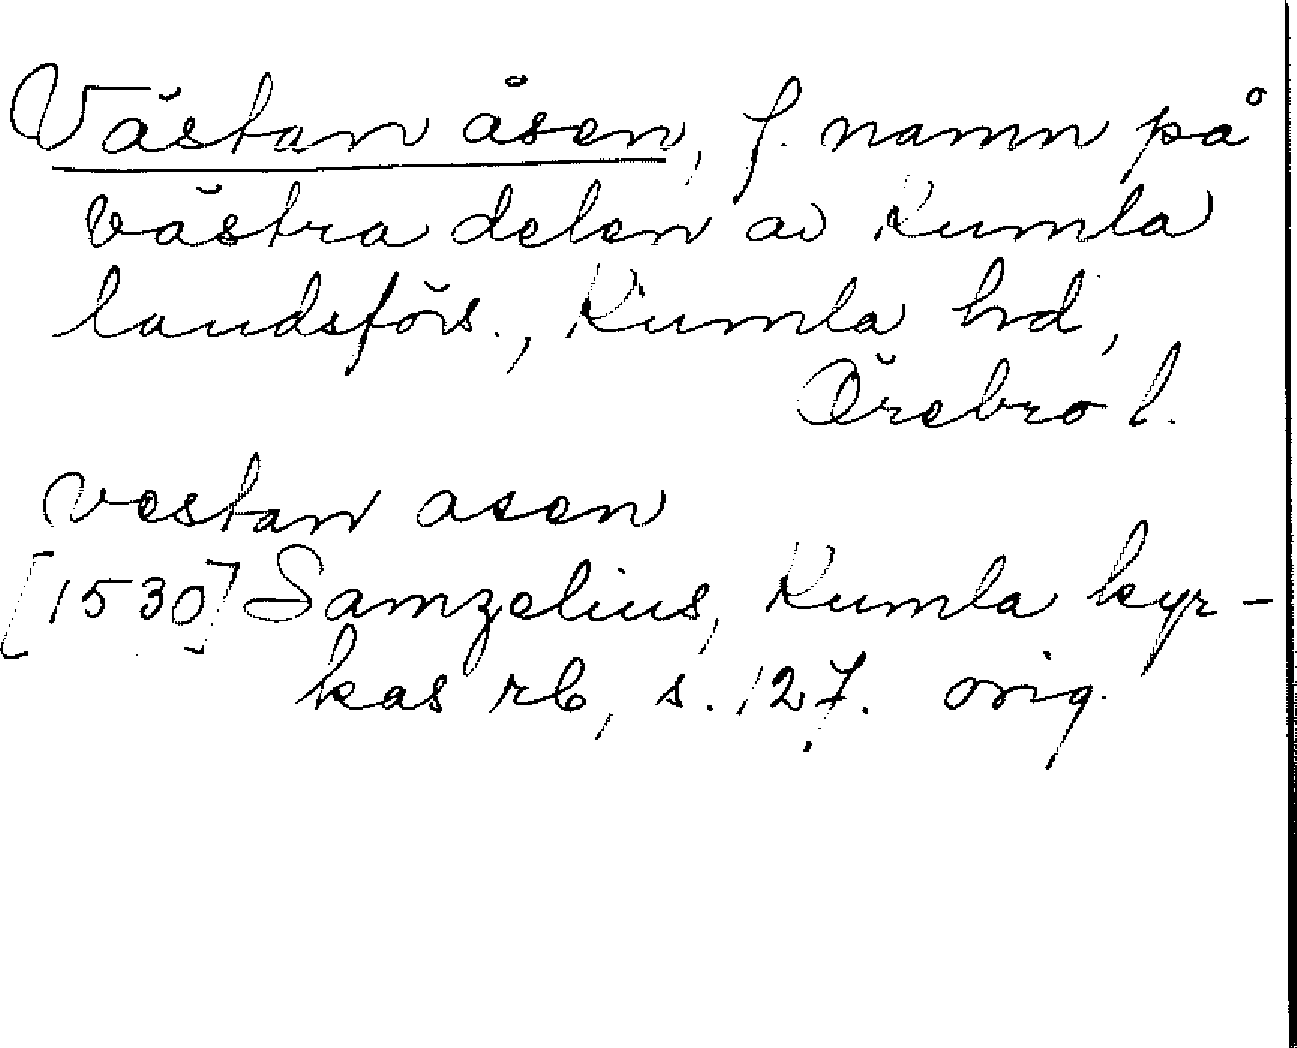 Västan åsen, f. namn på
västra delen av Kumla
landsförs., Kumla hd,
Örebro l.
vestan asen
[1530] Samzelius, Kumla kyr-
kas rb, s. 127. orig.